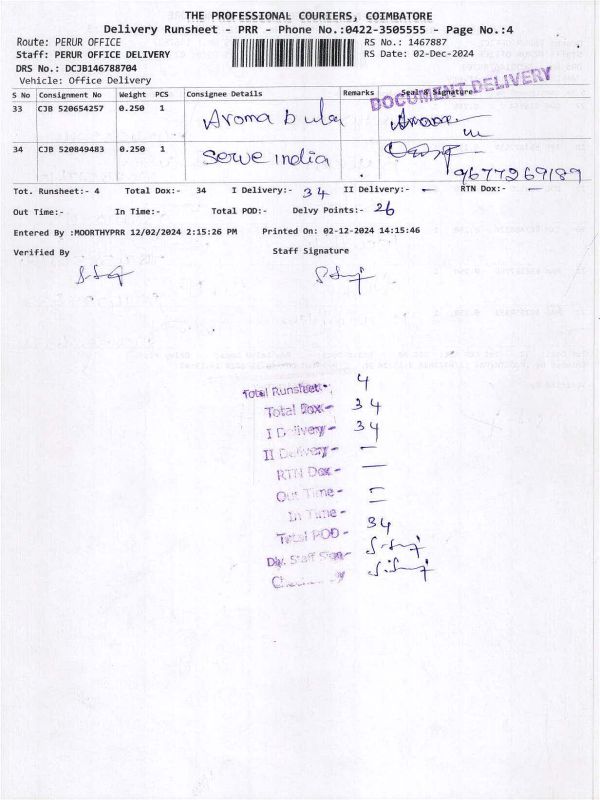 THE PROFESSIONAL COURIERS, COIMBATORE
Delivery Runsheet - PRR - Phone No.:0422-3505555 - Page No.:4
Route: PERUR OFFICE RS No.: 1467887
Staff: PERUR OFFICE DELIVERY RS Date: 02-Dec-2024
DRS No.: DCJB146788704
Vehicle: Office Delivery
DOCUMENT DELIVERY
S No Consignment No Weight PCS Consignee Details Remarks Seal & Signature
33 CJB 520654257 0.250 1 Aroma
34 CJB 520849483 0.250 1 Serve india
9677269189
Tot. Runsheet:- 4 Total Dox:- 34 I Delivery:- 34 II Delivery:- — RTN Dox:- —
Out Time:- In Time:- Total POD:- Delvy Points:- 26
Entered By :MOORTHYPRR 12/02/2024 2:15:26 PM Printed On: 02-12-2024 14:15:46
Verified By Staff Signature
Total Runsheet- 4
Total Dox- 34
I Delivery- 34
II Delivery- —
RTN Dox- —
Out Time- —
In Time- —
Total POD- 34
Div. Staff Sign-